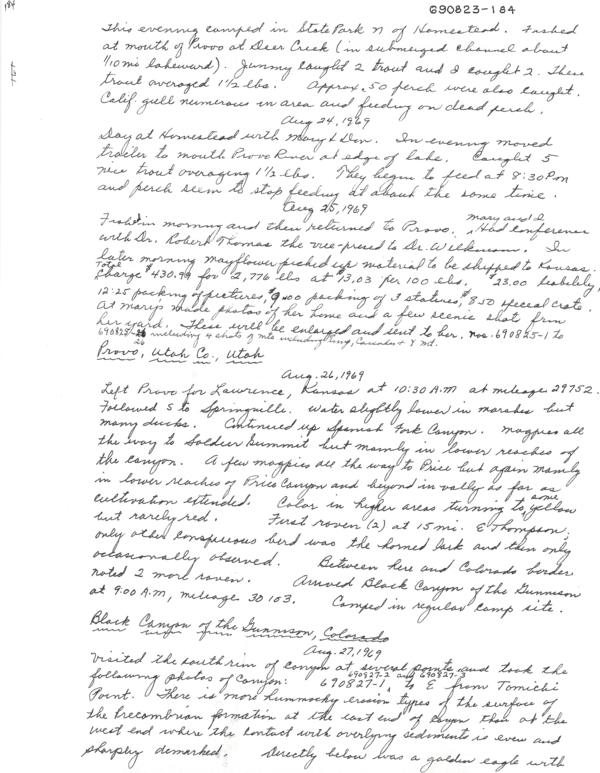 184
690823-184
This evening camped in State Park N of Homestead. Fished
at mouth of Provo at Deer Creek (in submerged channel about
1/10 mi lakeward). Jimmy caught 2 trout and I caught 2. These
trout averaged 1½ lbs. Approx. 50 perch were also caught.
Calif. gull numerous in area and feeding on dead perch.
Aug 24, 1969
Day at Homestead with Mary & Don. In evening moved
trailer to mouth Provo River at edge of lake. Caught 5
nice trout averaging 1½ lbs. They began to feed at 8:30 P.m
and perch seem to stop feeding at about the same time.
Aug 25, 1969
Fish in morning and then returned to Provo. mary and I Had conference
with Dr. Robert Thomas the vice-pres to Dr. Wilkinson. In
later morning mayflower picked up material to be shipped to Kansas.
Total Charge $430.99 for 2,776 lbs at $13.03 per 100 lbs, $23.00 liability,
12.25 packing of pictures, $9.00 packing of 3 statures, $8.50 special crate.
At marys made photos of her home and a few scenic shots from
her yard. These will be enlarged and sent to her. nos. 690825-1 to
690825-26 including 4 shots of mts including Timp, Cascade & Y Mt.
Provo, Utah Co., Utah
Aug. 26, 1969
Left Provo for Lawrence, Kansas at 10:30 A.M at mileage 29752.
Followed S to Springville. Water slightly lower in marshes but
many ducks. Continued up Spanish Fork Canyon. Magpies all
the way to Soldier Summit but mainly in lower reaches of
the canyon. A few magpies all the way to Price but again mainly
in lower reaches of Price Canyon and beyond in vally as far as
cultivation extended. Color in higher areas turning to some yellow
but rarely red. First raven (2) at 15 mi. E Thompson;
only other conspicuous bird was the horned lark and then only
occasionally observed. Between here and Colorado border
noted 2 more raven. Arrived Black Canyon of the Gunnison
at 9:00 A.M, mileage 30103. Camped in regular camp site.
Black Canyon of the Gunnison, Colorado
Aug. 27, 1969
Visited the south rim of canyon at several points and took the
following photos of canyon: 690827-1, 690827-2 and 690827-3 to E from Tomichi
Point. There is more hummocky erosion types of the surface of
the Precambrian formation at the east end of canyon than at the
west end where the contact with overlying sediments is even and
sharply demarked. Directly below was a golden eagle with